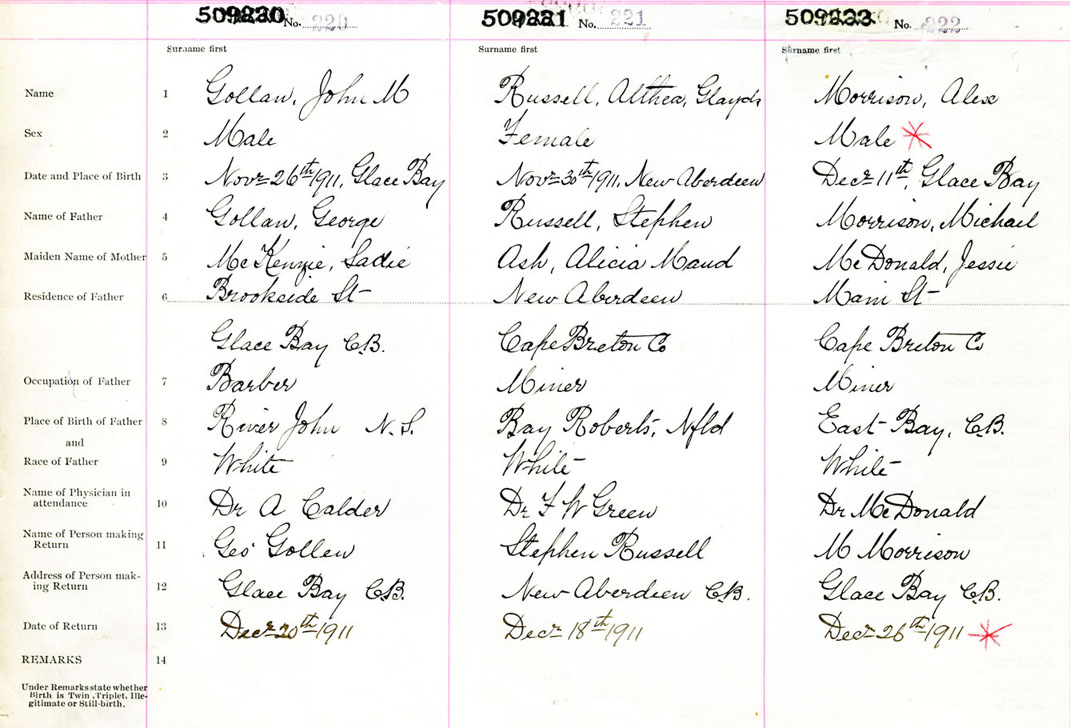 509220 No. 220 509221 No. 221 509222 No. 222
Surname first Surname first Surname first
Name 1 Gollan, John M Russell, Althea, Glayds Morrison, Alex
Sex 2 Male Female Male
Date and Place of Birth 3 Novr 26th 1911, Glace Bay Novr 30th 1911, New Aberdeen Decr 11th, Glace Bay
Name of Father 4 Gollan, George Russell, Stephen Morrison, Michael
Maiden Name of Mother 5 McKenzie, Sadie Ash, Alicia Maud McDonald, Jessie
Residence of Father 6 Brookside St New Aberdeen Main St
Glace Bay C.B. Cape Breton Co Cape Breton Co
Occupation of Father 7 Barber Miner Miner
Place of Birth of Father 8 River John N.S. Bay Roberts, Nfld East Bay, C.B.
and
Race of Father 9 White White White
Name of Physician in
attendance 10 Dr A Calder Dr F W Green Dr McDonald
Name of Person making
Return 11 Geo Gollen Stephen Russell M Morrison
Address of Person mak-
ing Return 12 Glace Bay C.B. New Aberdeen C.B. Glace Bay C.B.
Date of Return 13 Decr 20th 1911 Decr 18th 1911 Decr 26th 1911
REMARKS 14
Under Remarks state whether
Birth is Twin, Triplet, Ille-
gitimate or Still-birth.